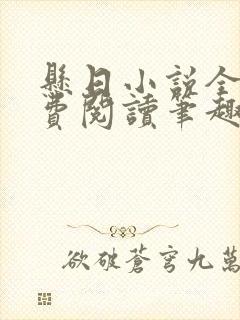 縣日小說全
費閱讀筆趣
欲破蒼穹九萬